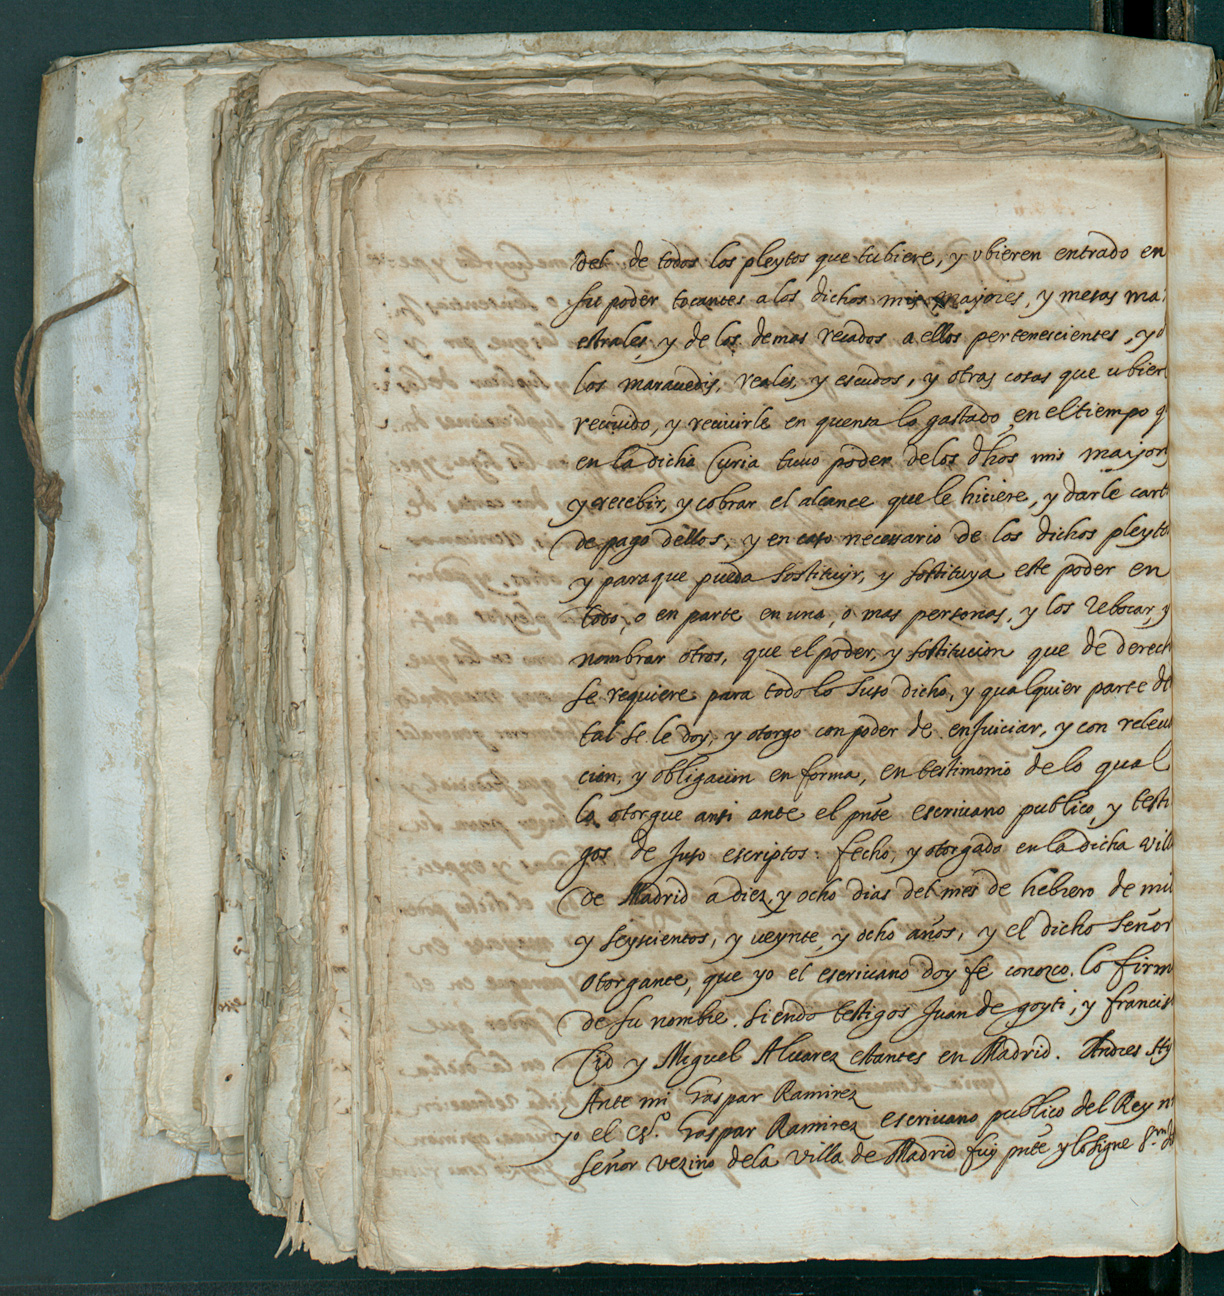 del de todos los pleytos que tubiere, y vbieren entrado en
su poder tocantes a los dichos mis mayores, y mesas ma
estrales, y de los demas recados a ellos pertenescientes, y d
los marauedis, reales, y escudos, y otras cosas que vbier
recuuido, y reciuirle en quenta lo gastado en el tiempo q
en la dicha Curia tuuo poder de los dhos mis mayor
y recebir, y cobrar el alcance que le hiciere, y darle cart
de pago dellos, y en caso necessario de los dichos pleyto
y para que pueda sostituyr, y sostituya este poder en
todo, o en parte en una, o mas personas, y los rebocar, y
nombrar otros, que el poder, y sostitucion que de derech
se requiere para todo lo suso dicho, y qualquier parte de
tal se le doy, y otorgo con poder de enjuiciar, y con releua
cion, y obligacion en forma, en testimonio de lo qual
lo otorgue ansi ante el pnte escriuano publico, y testi
gos de juso escriptos: fecho, y otorgado en la dicha vill
de Madrid a diez, y ocho dias del mes de hebrero de mil
y seyscientos, y veynte, y ocho años, y el dicho señor
otorgante, que yo el escriuano doy fe conozco. lo firm
de su nombre. siendo testigos Juan de goyti, y francis
Cid y Miguel Aluarez estantes en Madrid. Andres
Ante mi Gaspar Ramirez
yo el Es.º Gaspar Ramirez escriuano publico del Rey n
señor vezino de la villa de Madrid fuy pnte y lo signe